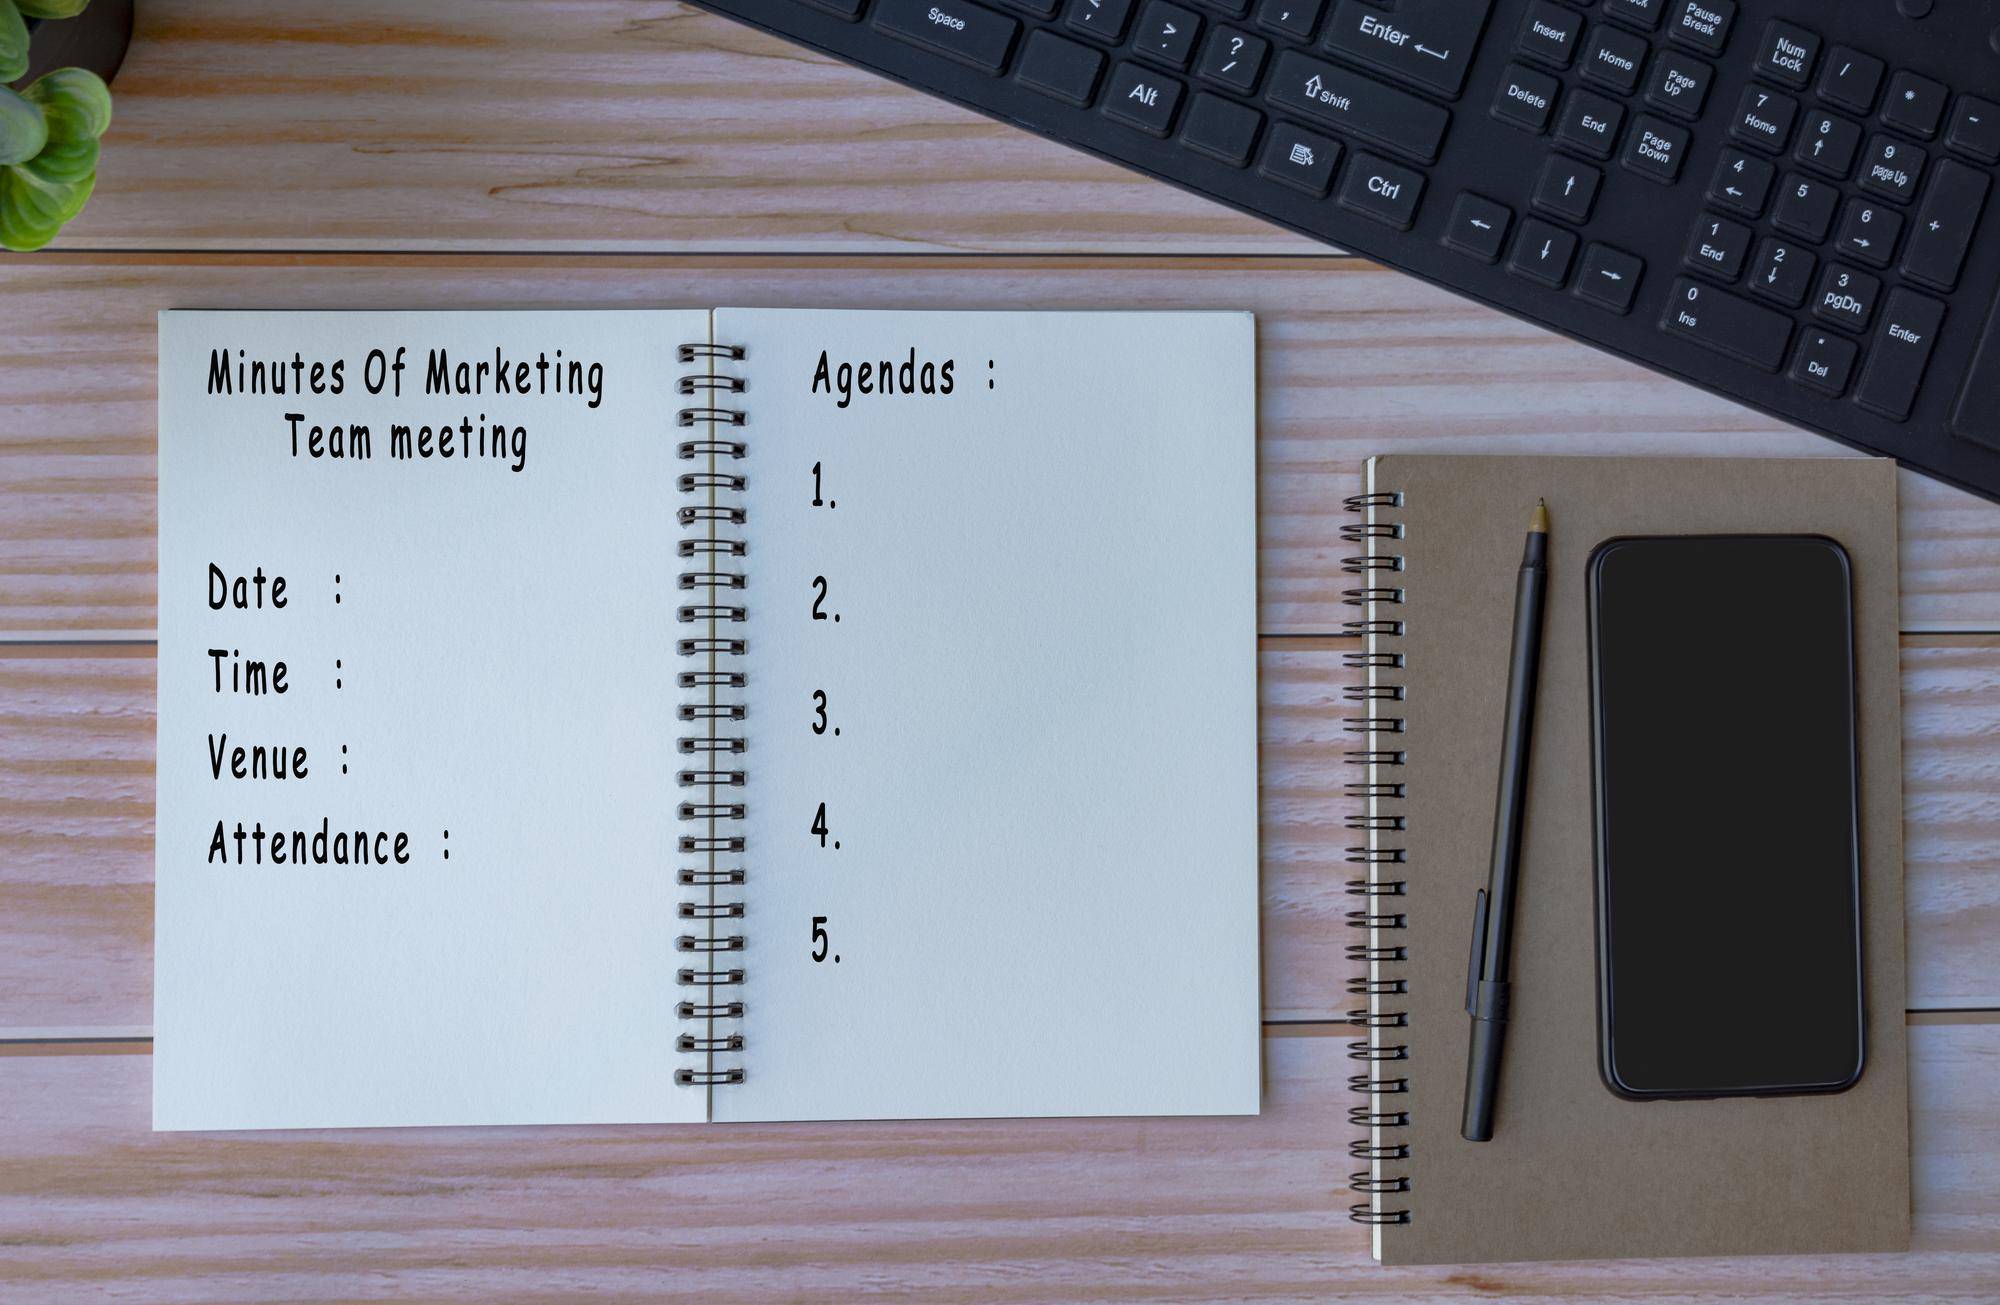 Minutes Of Marketing
Team meeting
Date :
Time :
Venue :
Attendance :
Agendas :
1.
2.
3.
4.
5.
Space
> .
? /
Enter
Alt
Shift
Ctrl
Insert
Home
Pause Break
Page Up
Delete
End
Page Down
Num Lock
/
*
-
7 Home
8
9 page Up
4
5
6
+
1 End
2
3 pgDn
Enter
0 Ins
Del